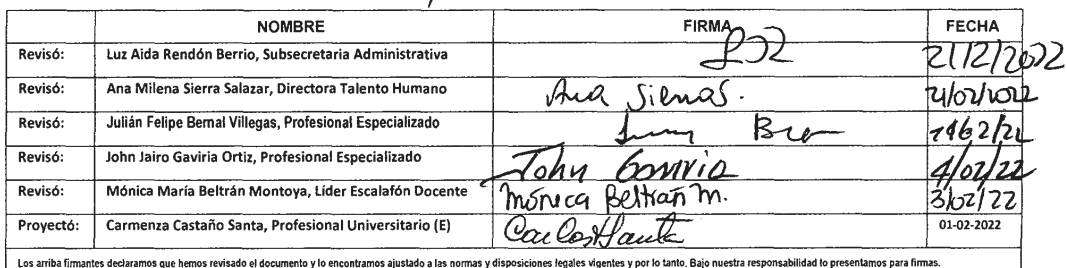 NOMBRE FIRMA FECHA
Revisó: Luz Aida Rendón Berrio, Subsecretaria Administrativa
Revisó: Ana Milena Sierra Salazar, Directora Talento Humano Ana Sierra S.
Revisó: Julián Felipe Bernal Villegas, Profesional Especializado
Revisó: John Jairo Gaviria Ortiz, Profesional Especializado John Gaviria 4/02/22
Revisó: Mónica María Beltrán Montoya, Líder Escalafón Docente Mónica Beltrán M. 3/02/22
Proyectó: Carmenza Castaño Santa, Profesional Universitario (E) 01-02-2022
Los arriba firmantes declaramos que hemos revisado el documento y lo encontramos ajustado a las normas y disposiciones legales vigentes y por lo tanto. Bajo nuestra responsabilidad lo presentamos para firmas.